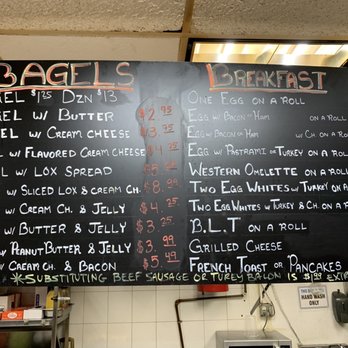 BAGELS
EL $1.25 DZN $13
EL W/ BUTTER $2.95
EL W/ CREAM CHEESE $3.95
L W/ FLAVORED CREAM CHEESE
L W/ LOX SPREAD
W/ SLICED LOX & CREAM CH.
W/ CREAM CH. & JELLY
W/ BUTTER & JELLY
W/ PEANUT BUTTER & JELLY $3.99
W/ CREAM CH. & BACON $5.49
BREAKFAST
ONE EGG ON A ROLL
EGG W/ BACON OR HAM ON A ROLL
EGG W/ BACON OR HAM W/ CH. ON A ROLL
EGG W/ PASTRAMI OR TURKEY ON A RO
WESTERN OMELETTE ON A ROLL
TWO EGG WHITES W/ TURKEY ON A
TWO EGG WHITES W/ TURKEY & CH. ON A
B.L.T ON A ROLL
GRILLED CHEESE
FRENCH TOAST OR PANCAKES
*SUBSTITUTING BEEF SAUSAGE OR TURKEY BACON IS $1.99 EXTR
HAND WASH